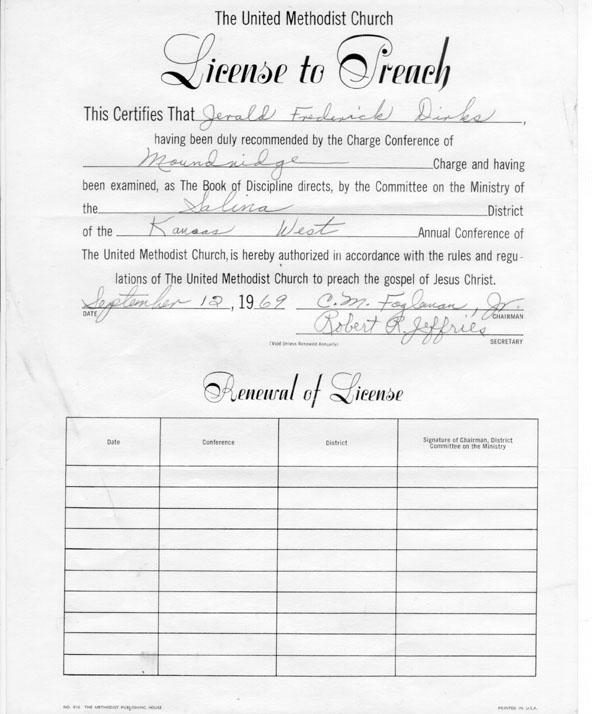 The United Methodist Church
License to Preach
This Certifies That Jerald Frederick Dirks,
having been duly recommended by the Charge Conference of
Moundridge Charge and having
been examined, as The Book of Discipline directs, by the Committee on the Ministry of
the Salina District
of the Kansas West Annual Conference of
The United Methodist Church, is hereby authorized in accordance with the rules and regu-
lations of The United Methodist Church to preach the gospel of Jesus Christ.
September 12, 1969 C.M. Fogleman, Jr.
DATE CHAIRMAN
Robert R. Jeffries
(Void Unless Renewed Annually) SECRETARY
Renewal of License
Date Conference District Signature of Chairman, District
Committee on the Ministry
NO. 916 THE METHODIST PUBLISHING HOUSE PRINTED IN U.S.A.